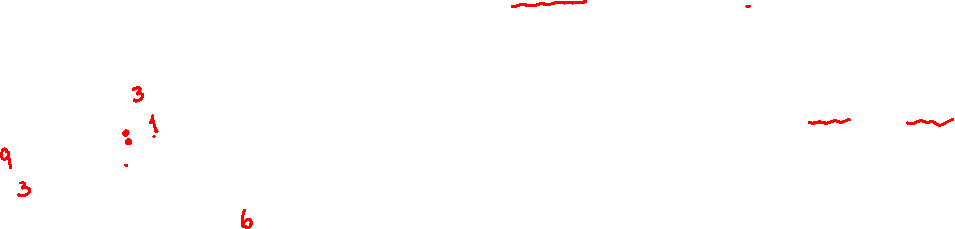 3
1
9
3
6